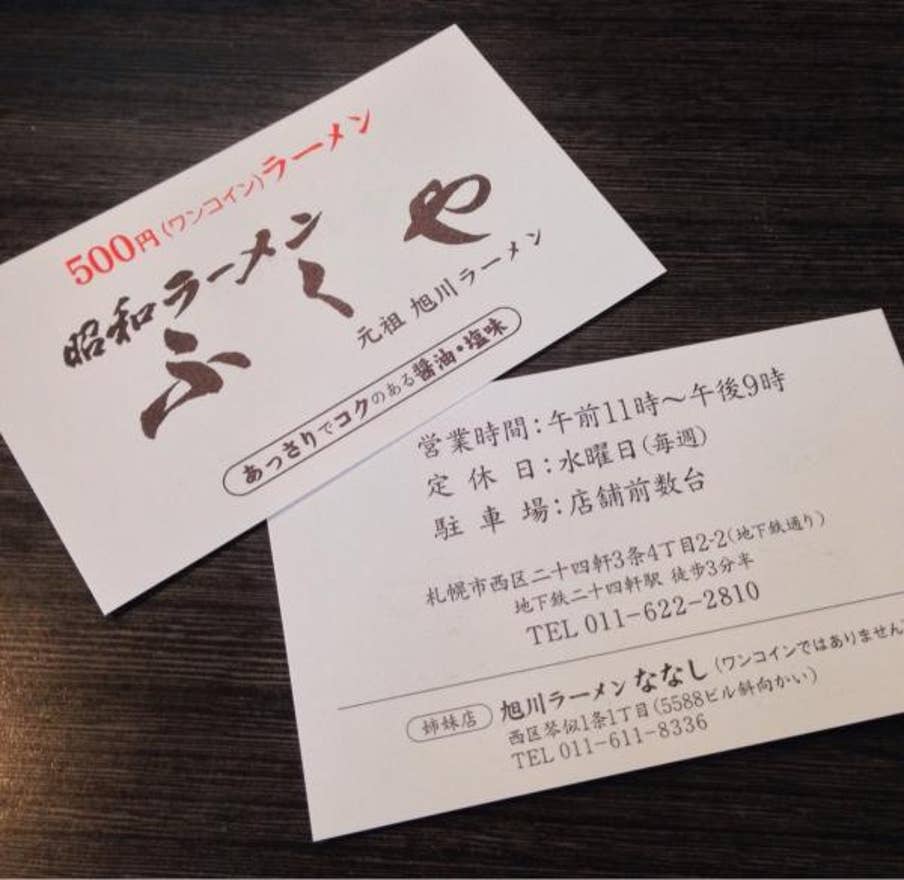 500円(ワンコイン)ラーメン
昭和ラーメン
ふくや
元祖 旭川ラーメン
あっさりでコクのある醤油・塩味
営業時間:午前11時～午後9時
定休日:水曜日(毎週)
駐車場:店舗前数台
札幌市西区二十四軒3条4丁目2-2(地下鉄通り)
地下鉄二十四軒駅 徒歩3分半
TEL 011-622-2810
姉妹店 旭川ラーメン ななし(ワンコインではありません)
西区琴似1条1丁目(5588ビル斜向かい)
TEL 011-611-8336